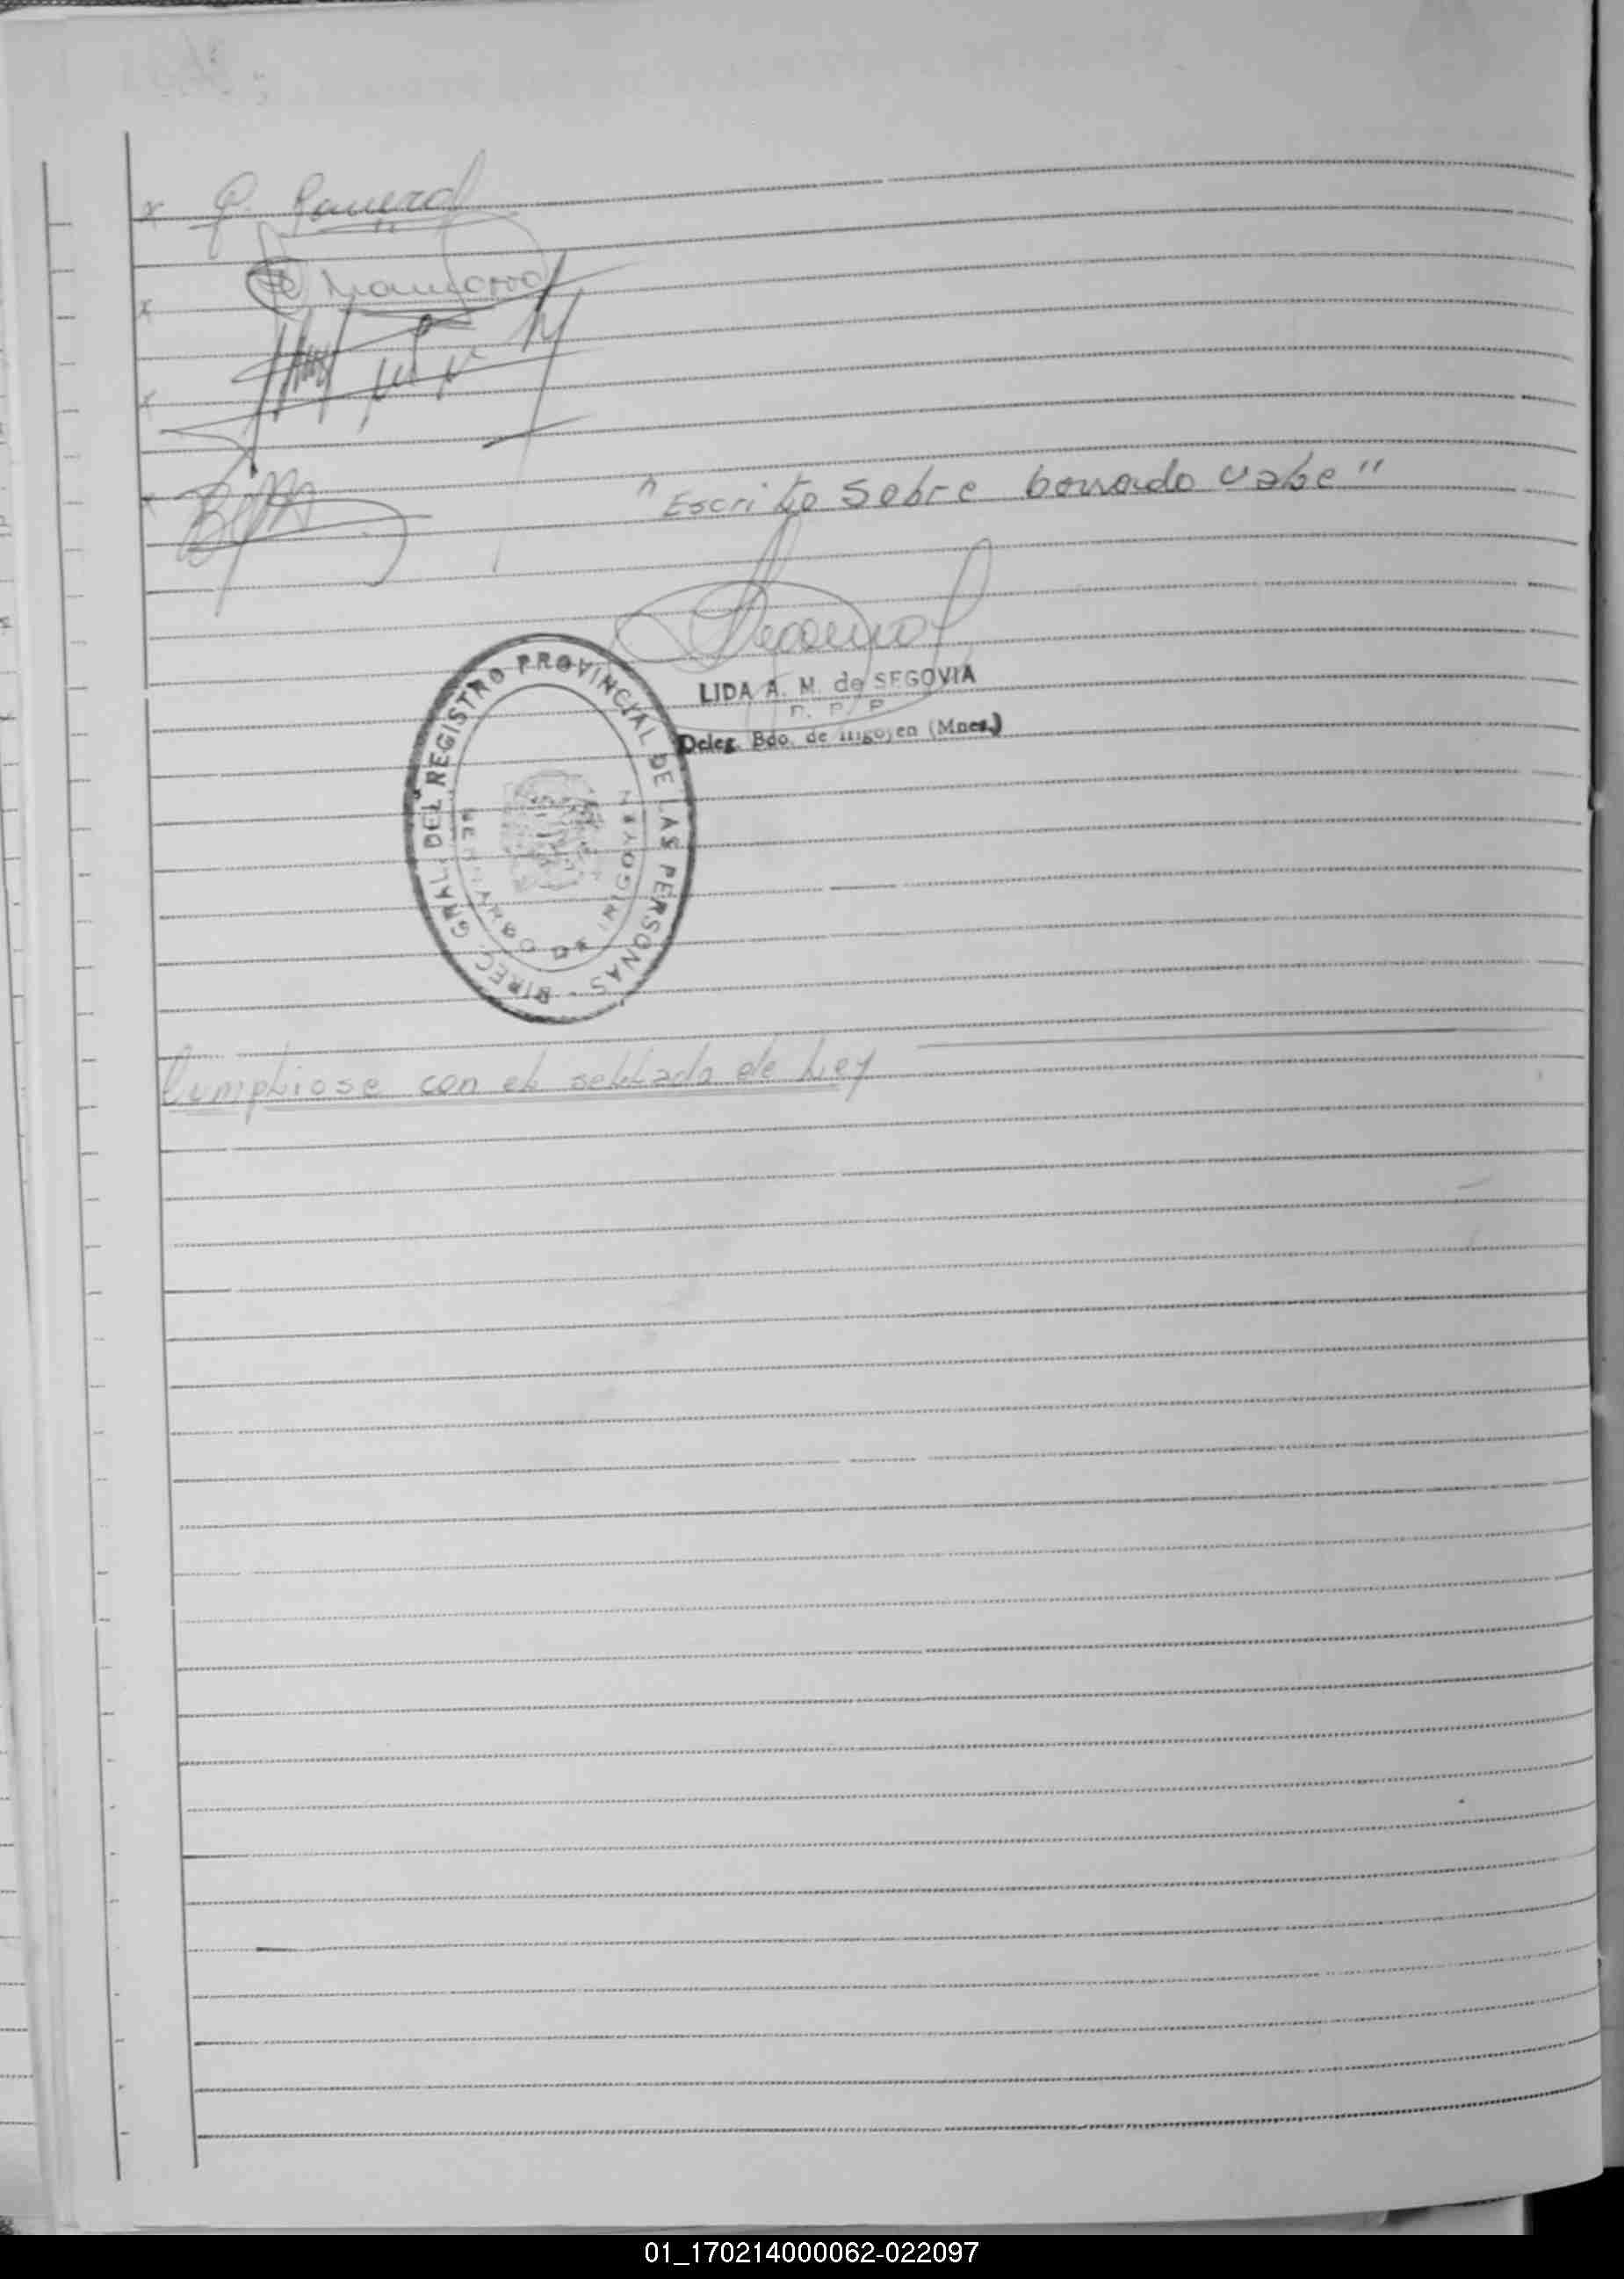 "Escrito sobre borrado vale"
LIDA A. M. de SEGOVIA
R. P. P.
Deleg. Bdo. de Irigoyen (Mnes.)
DIREC. GRAL. DEL REGISTRO PROVINCIAL DE LAS PERSONAS -
BERNARDO DE IRIGOYEN
Cumpliose con el sellado de Ley
01_170214000062-022097